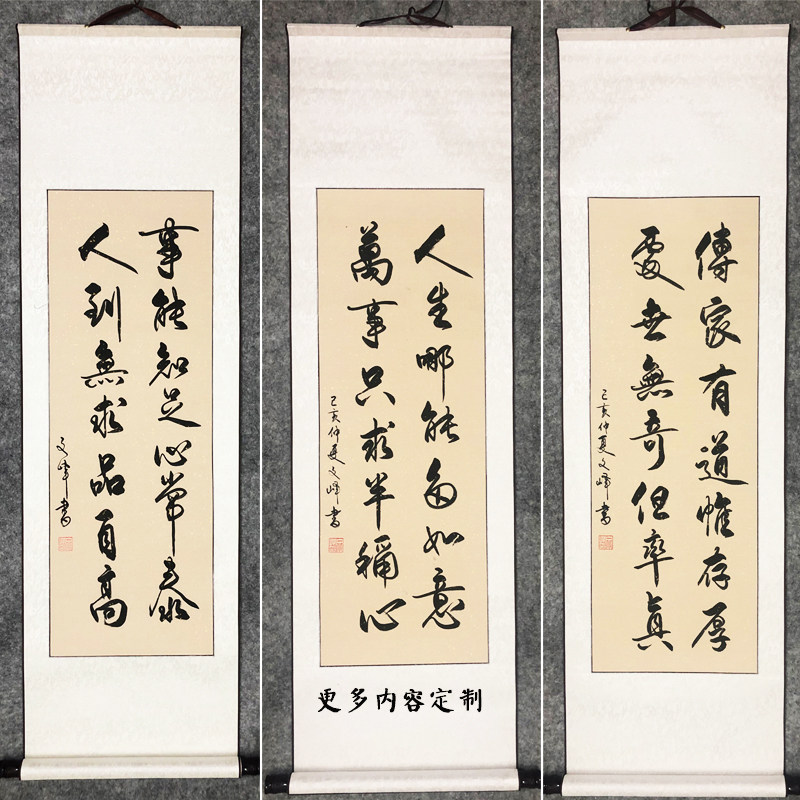 事能知足心常泰
人到無求品自高
文峰書
人生哪能多如意
萬事只求半稱心
己亥仲夏文峰書
傳家有道惟存厚
處世無奇但率真
己亥仲夏文峰書
更多内容定制